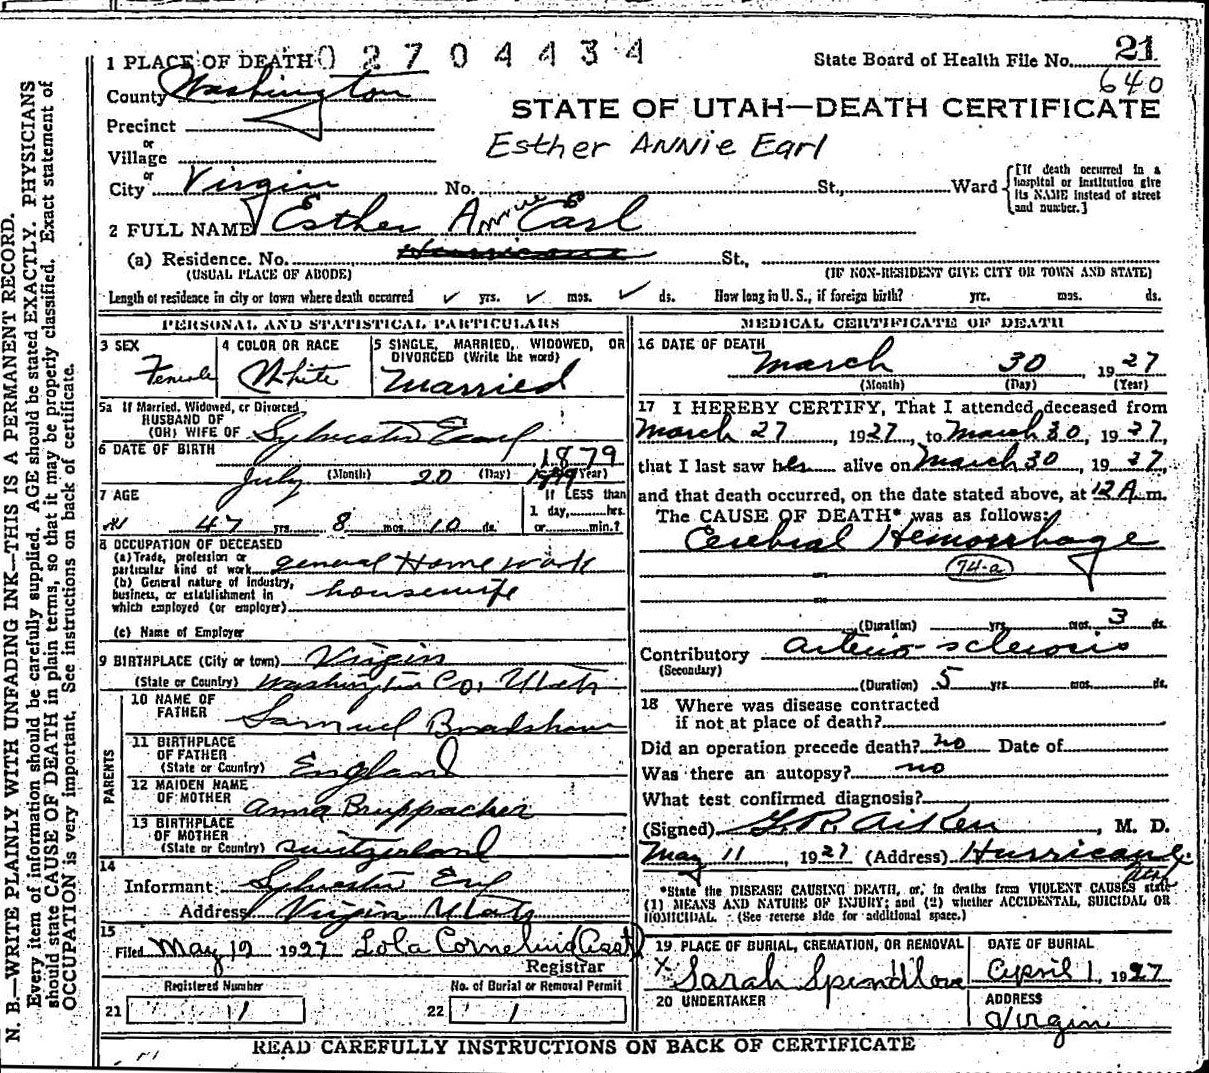 1 PLACE OF DEATH 02704434
State Board of Health File No. 21
640
County Washington
STATE OF UTAH—DEATH CERTIFICATE
Precinct
Esther Annie Earl
or
Village
or
City Virgin No. St., Ward [If death occurred in a hospital or institution give its NAME instead of street and number.]
2 FULL NAME Esther Annie Earl
(a) Residence. No. Hurricane St.,
(USUAL PLACE OF ABODE) (IF NON-RESIDENT GIVE CITY OR TOWN AND STATE)
Length of residence in city or town where death occurred ✓ yrs. ✓ mos. ✓ ds. How long in U.S., if foreign birth? yrs. mos. ds.
PERSONAL AND STATISTICAL PARTICULARS
3 SEX 4 COLOR OR RACE 5 SINGLE, MARRIED, WIDOWED, OR
DIVORCED (Write the word)
Female White Married
5a If Married, Widowed, or Divorced
HUSBAND OF
(OR) WIFE OF Sylvester Earl
6 DATE OF BIRTH 1879
July (Month) 20 (Day) (Year)
7 AGE If LESS than
1 day, hrs.
47 yrs. 8 mos. 10 ds. or min.?
8 OCCUPATION OF DECEASED
(a) Trade, profession or
particular kind of work general Home work
(b) General nature of industry,
business, or establishment in housewife
which employed (or employer)
(c) Name of Employer
9 BIRTHPLACE (City or town) Virgin
(State or Country) Washington Co., Utah
PARENTS
10 NAME OF
FATHER Samuel Bradshaw
11 BIRTHPLACE
OF FATHER
(State or Country) England
12 MAIDEN NAME
OF MOTHER Anna Bruppacher
13 BIRTHPLACE
OF MOTHER
(State or Country) Switzerland
14
Informant: Sylvester Earl
Address Virgin Utah
15
Filed May 12 1927 Lola Cornelius (Asst)
Registrar
Registered Number No. of Burial or Removal Permit
21 1 22 1
MEDICAL CERTIFICATE OF DEATH
16 DATE OF DEATH
March 30 1927
(Month) (Day) (Year)
17 I HEREBY CERTIFY, That I attended deceased from
March 27, 1927, to March 30, 1927,
that I last saw her alive on March 30, 1927,
and that death occurred, on the date stated above, at 12 A. m.
The CAUSE OF DEATH* was as follows:
Cerebral Hemorrhage
74-a
(Duration) yrs. mos. 3 ds.
Contributory arterio-sclerosis
(Secondary)
(Duration) 5 yrs. mos. ds.
18 Where was disease contracted
if not at place of death?
Did an operation precede death? no Date of
Was there an autopsy? no
What test confirmed diagnosis?
(Signed) G.R. Aiken, M. D.
May 11, 1927 (Address) Hurricane
Utah
*State the DISEASE CAUSING DEATH, or, in deaths from VIOLENT CAUSES state
(1) MEANS AND NATURE OF INJURY; and (2) whether ACCIDENTAL, SUICIDAL OR
HOMICIDAL. (See reverse side for additional space.)
19 PLACE OF BURIAL, CREMATION, OR REMOVAL DATE OF BURIAL
X Sarah Spendlove April 1, 1927
20 UNDERTAKER ADDRESS
Virgin
READ CAREFULLY INSTRUCTIONS ON BACK OF CERTIFICATE
N. B.—WRITE PLAINLY WITH UNFADING INK—THIS IS A PERMANENT RECORD.
Every item of information should be carefully supplied. AGE should be stated EXACTLY. PHYSICIANS
should state CAUSE OF DEATH in plain terms, so that it may be properly classified. Exact statement of
OCCUPATION is very important. See instructions on back of certificate.